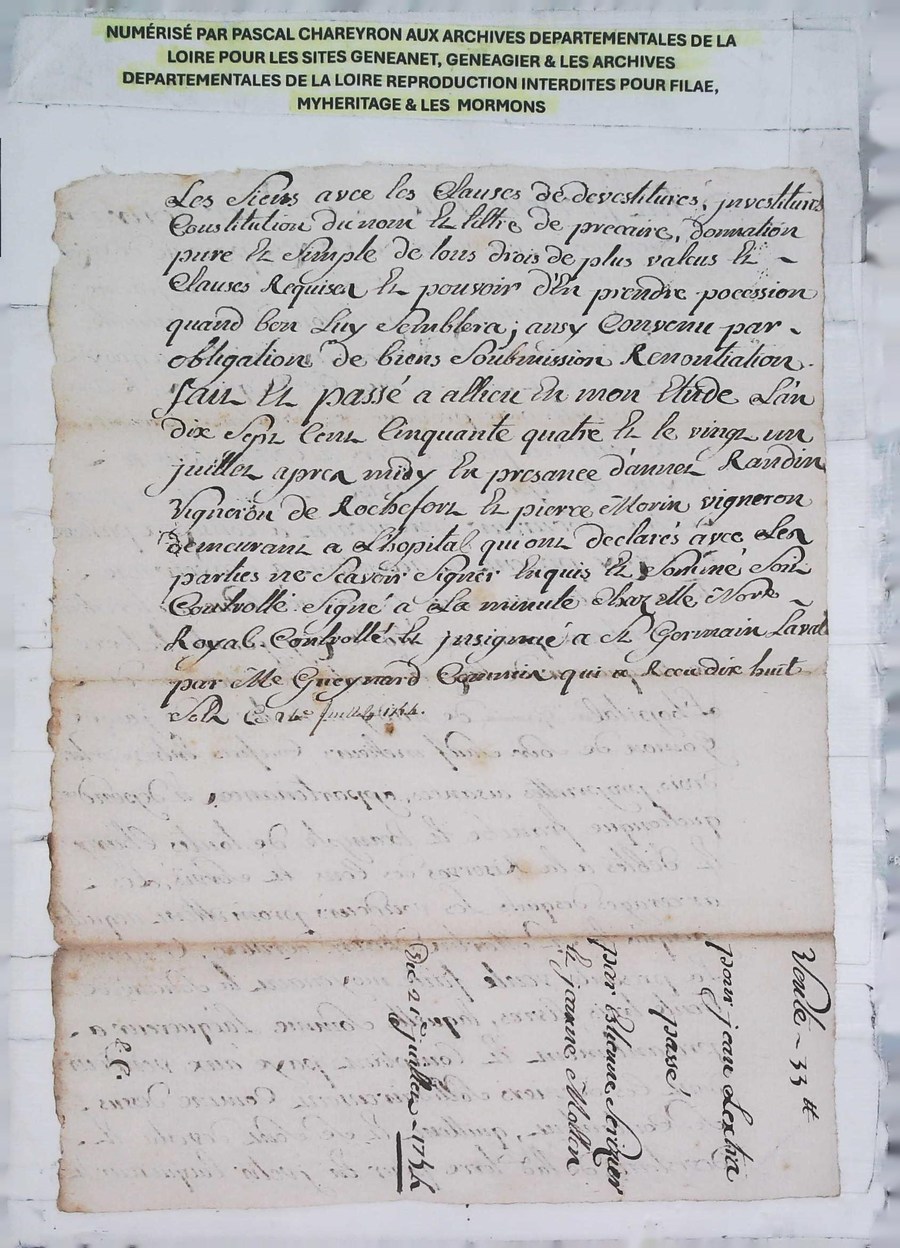 NUMÉRISÉ PAR PASCAL CHAREYRON AUX ARCHIVES DEPARTEMENTALES DE LA
LOIRE POUR LES SITES GENEANET, GENEAGIER & LES ARCHIVES
DEPARTEMENTALES DE LA LOIRE REPRODUCTION INTERDITES POUR FILAE,
MYHERITAGE & LES MORMONS
Les Siens avec les Clauses de devestitures, jnvestitures
Constitution du nom Et tiltre de precaire, donnation
pure Et Simple de tous drois de plus valeus Et -
Clauses Requises Et pouvoir d'En prendre pocession
quand bon Luy Semblera; ansy Convenu par -
obligation de biens Soubmission Renontiation.
fait Et passé a allieu En mon Etude L'an
dix Sept Cent Cinquante quatre Et le vingt un
juillet apres midy En presance d'annet Randin
Vigneron de Rochefort Et pierre Morin vigneron
demeurant a L'hopital qui ont declarés avec Les
parties ne Scavoir Signer Enquis Et Sommé Soit
Controllé. Signé a La minute Chazelle Nore -
Royal. Controllé Et jnsignué a St Germain Laval
par Me Gueynard Commis qui a Receu dix huit
Sols Ce 24e juillet 1754.
Vente - 33 tt
pour jean Lextra
passé
par Etienne
Et jeanne
Du 21e juillet - 1754
& C.